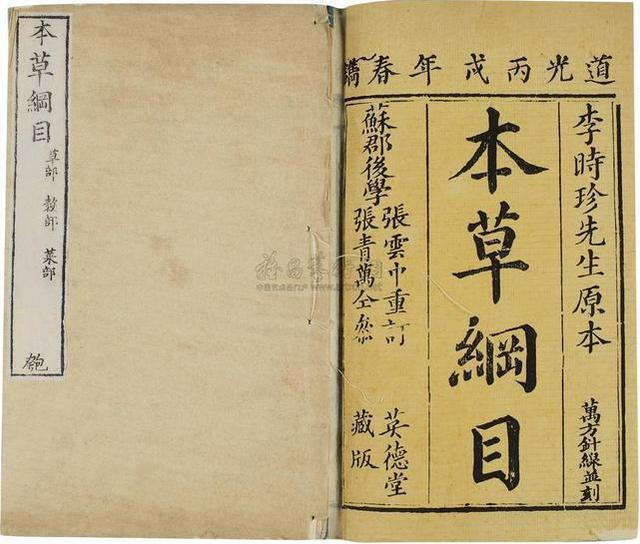 本草綱目
草部 穀部 菜部
匏
道光丙戌年春鐫
李時珍先生原本
萬方針線並刻
本草綱目
蘇郡後學
張雲中重訂
張青萬仝參
英德堂
藏版